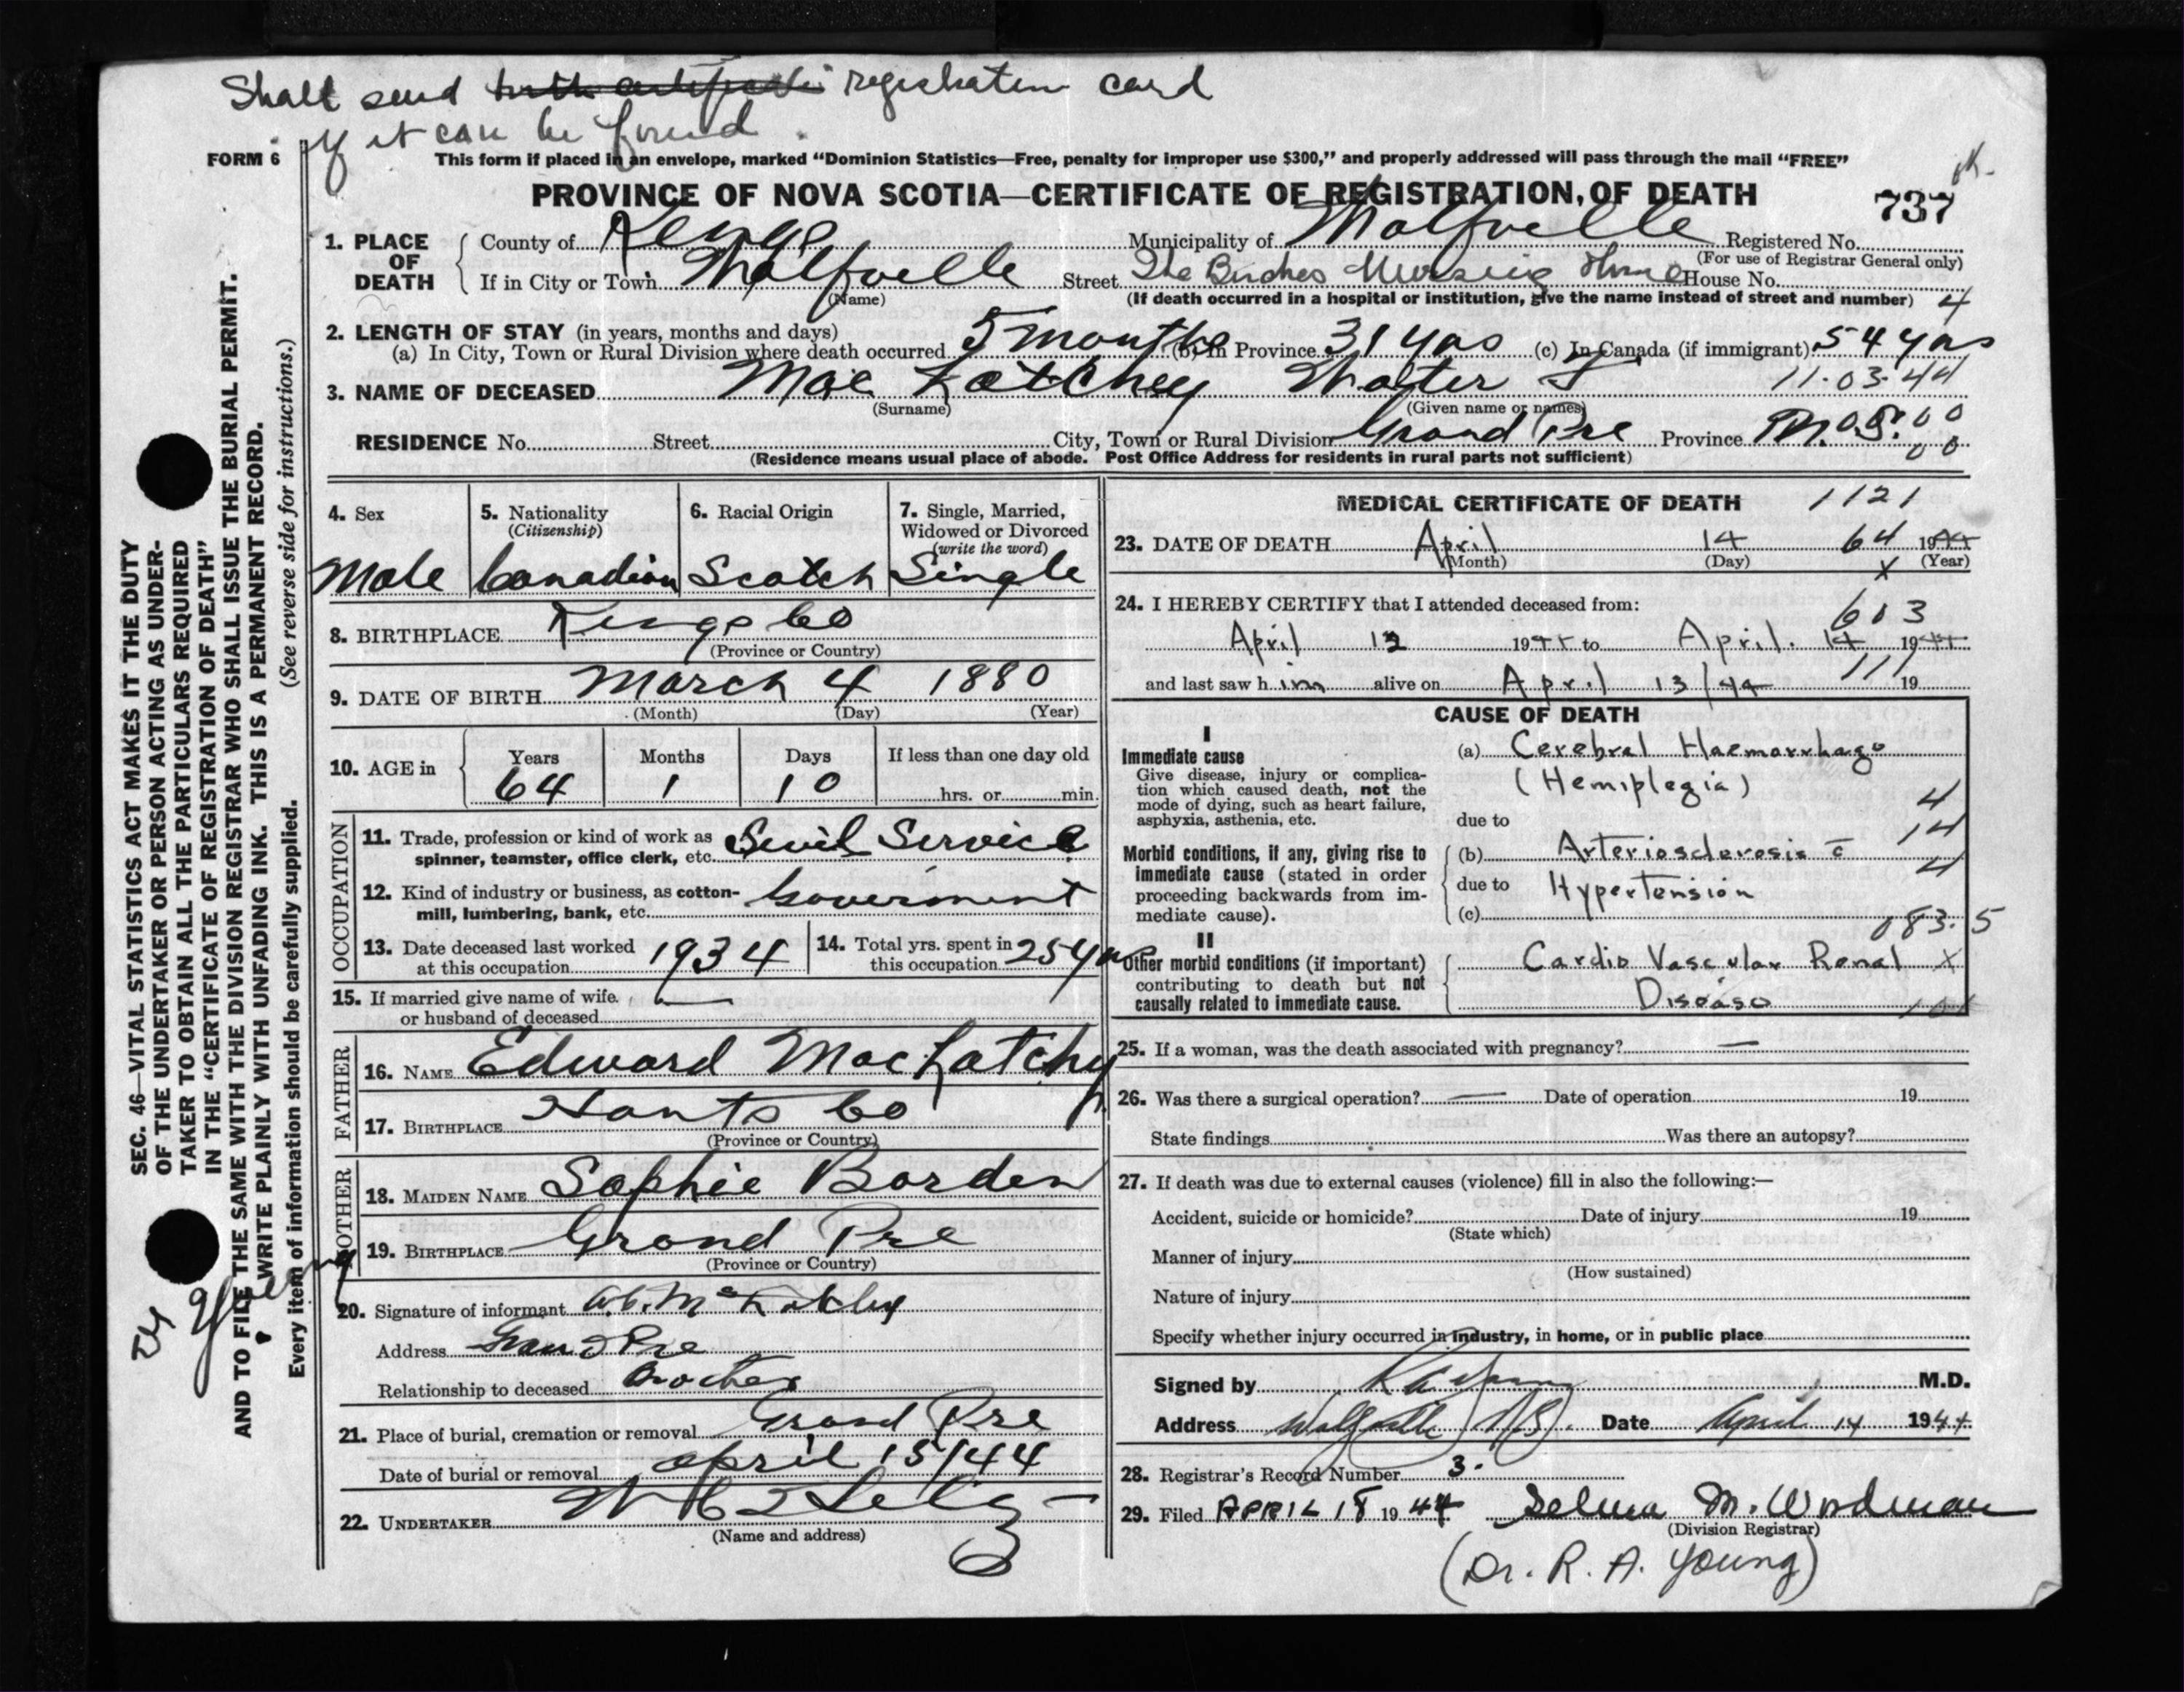 Shall send birth certificate registration card
if it can be found.
FORM 6
This form if placed in an envelope, marked “Dominion Statistics—Free, penalty for improper use $300,” and properly addressed will pass through the mail “FREE”
PROVINCE OF NOVA SCOTIA—CERTIFICATE OF REGISTRATION OF DEATH
737
1. PLACE OF DEATH
County of Kings Municipality of Wolfville Registered No.
(For use of Registrar General only)
If in City or Town Wolfville Street The Birches Nursing Home House No.
(Name) (If death occurred in a hospital or institution, give the name instead of street and number) 4
2. LENGTH OF STAY (in years, months and days)
(a) In City, Town or Rural Division where death occurred 5 months (b) In Province 31 yrs (c) In Canada (if immigrant) 54 yrs
3. NAME OF DECEASED Mac Latchey Walter 11.03.44
(Surname) (Given name or names)
RESIDENCE No. Street City, Town or Rural Division Grand Pre Province N.S. 00
00
(Residence means usual place of abode. Post Office Address for residents in rural parts not sufficient)
4. Sex
Male
5. Nationality
(Citizenship)
Canadian
6. Racial Origin
Scotch
7. Single, Married,
Widowed or Divorced
(write the word)
Single
8. BIRTHPLACE Kings Co
(Province or Country)
9. DATE OF BIRTH March 4 1880
(Month) (Day) (Year)
10. AGE in
Years Months Days If less than one day old
64 1 10 hrs. or min.
OCCUPATION
11. Trade, profession or kind of work as
spinner, teamster, office clerk, etc. Sevil Service
12. Kind of industry or business, as cotton-
mill, lumbering, bank, etc. Goverment
13. Date deceased last worked
at this occupation 1934
14. Total yrs. spent in
this occupation 25 yrs
15. If married give name of wife
or husband of deceased —
FATHER
16. NAME Edward MacLatchy
17. BIRTHPLACE Hants Co
(Province or Country)
MOTHER
18. MAIDEN NAME Sophie Borden
19. BIRTHPLACE Grand Pre
(Province or Country)
20. Signature of informant
Address Grand Pre
Relationship to deceased Brother
21. Place of burial, cremation or removal Grand Pre
Date of burial or removal April 15/44
22. UNDERTAKER
(Name and address)
MEDICAL CERTIFICATE OF DEATH 1121
23. DATE OF DEATH April 14 64 1944
(Month) (Day) (Year)
x
24. I HEREBY CERTIFY that I attended deceased from:
603
April 12 1944 to April. 14 1944
and last saw him alive on April 13/44 111 19
CAUSE OF DEATH
I
Immediate cause
Give disease, injury or complica-
tion which caused death, not the
mode of dying, such as heart failure,
asphyxia, asthenia, etc.
(a) Cerebral Haemorrhage
(Hemiplegia)
4
due to
14
Morbid conditions, if any, giving rise to
immediate cause (stated in order
proceeding backwards from im-
mediate cause).
(b) Arteriosclerosis c̄
4
due to Hypertension
(c)
083.5
II
Other morbid conditions (if important)
contributing to death but not
causally related to immediate cause.
Cardio Vascular Renal x
Disease
25. If a woman, was the death associated with pregnancy? —
26. Was there a surgical operation? — Date of operation 19
State findings Was there an autopsy?
27. If death was due to external causes (violence) fill in also the following:—
Accident, suicide or homicide? Date of injury 19
(State which)
Manner of injury
(How sustained)
Nature of injury
Specify whether injury occurred in industry, in home, or in public place
Signed by R A Young M.D.
Address Wolfville N.S. Date April 14 1944
28. Registrar's Record Number 3.
29. Filed APRIL 18 1944 Selma M. Woodman
(Division Registrar)
(Dr. R. A. Young)
SEC. 46—VITAL STATISTICS ACT MAKES IT THE DUTY
OF THE UNDERTAKER OR PERSON ACTING AS UNDER-
TAKER TO OBTAIN ALL THE PARTICULARS REQUIRED
IN THE “CERTIFICATE OF REGISTRATION OF DEATH”
AND TO FILE THE SAME WITH THE DIVISION REGISTRAR WHO SHALL ISSUE THE BURIAL PERMIT.
WRITE PLAINLY WITH UNFADING INK. THIS IS A PERMANENT RECORD.
(See reverse side for instructions.)
Every item of information should be carefully supplied.
Young